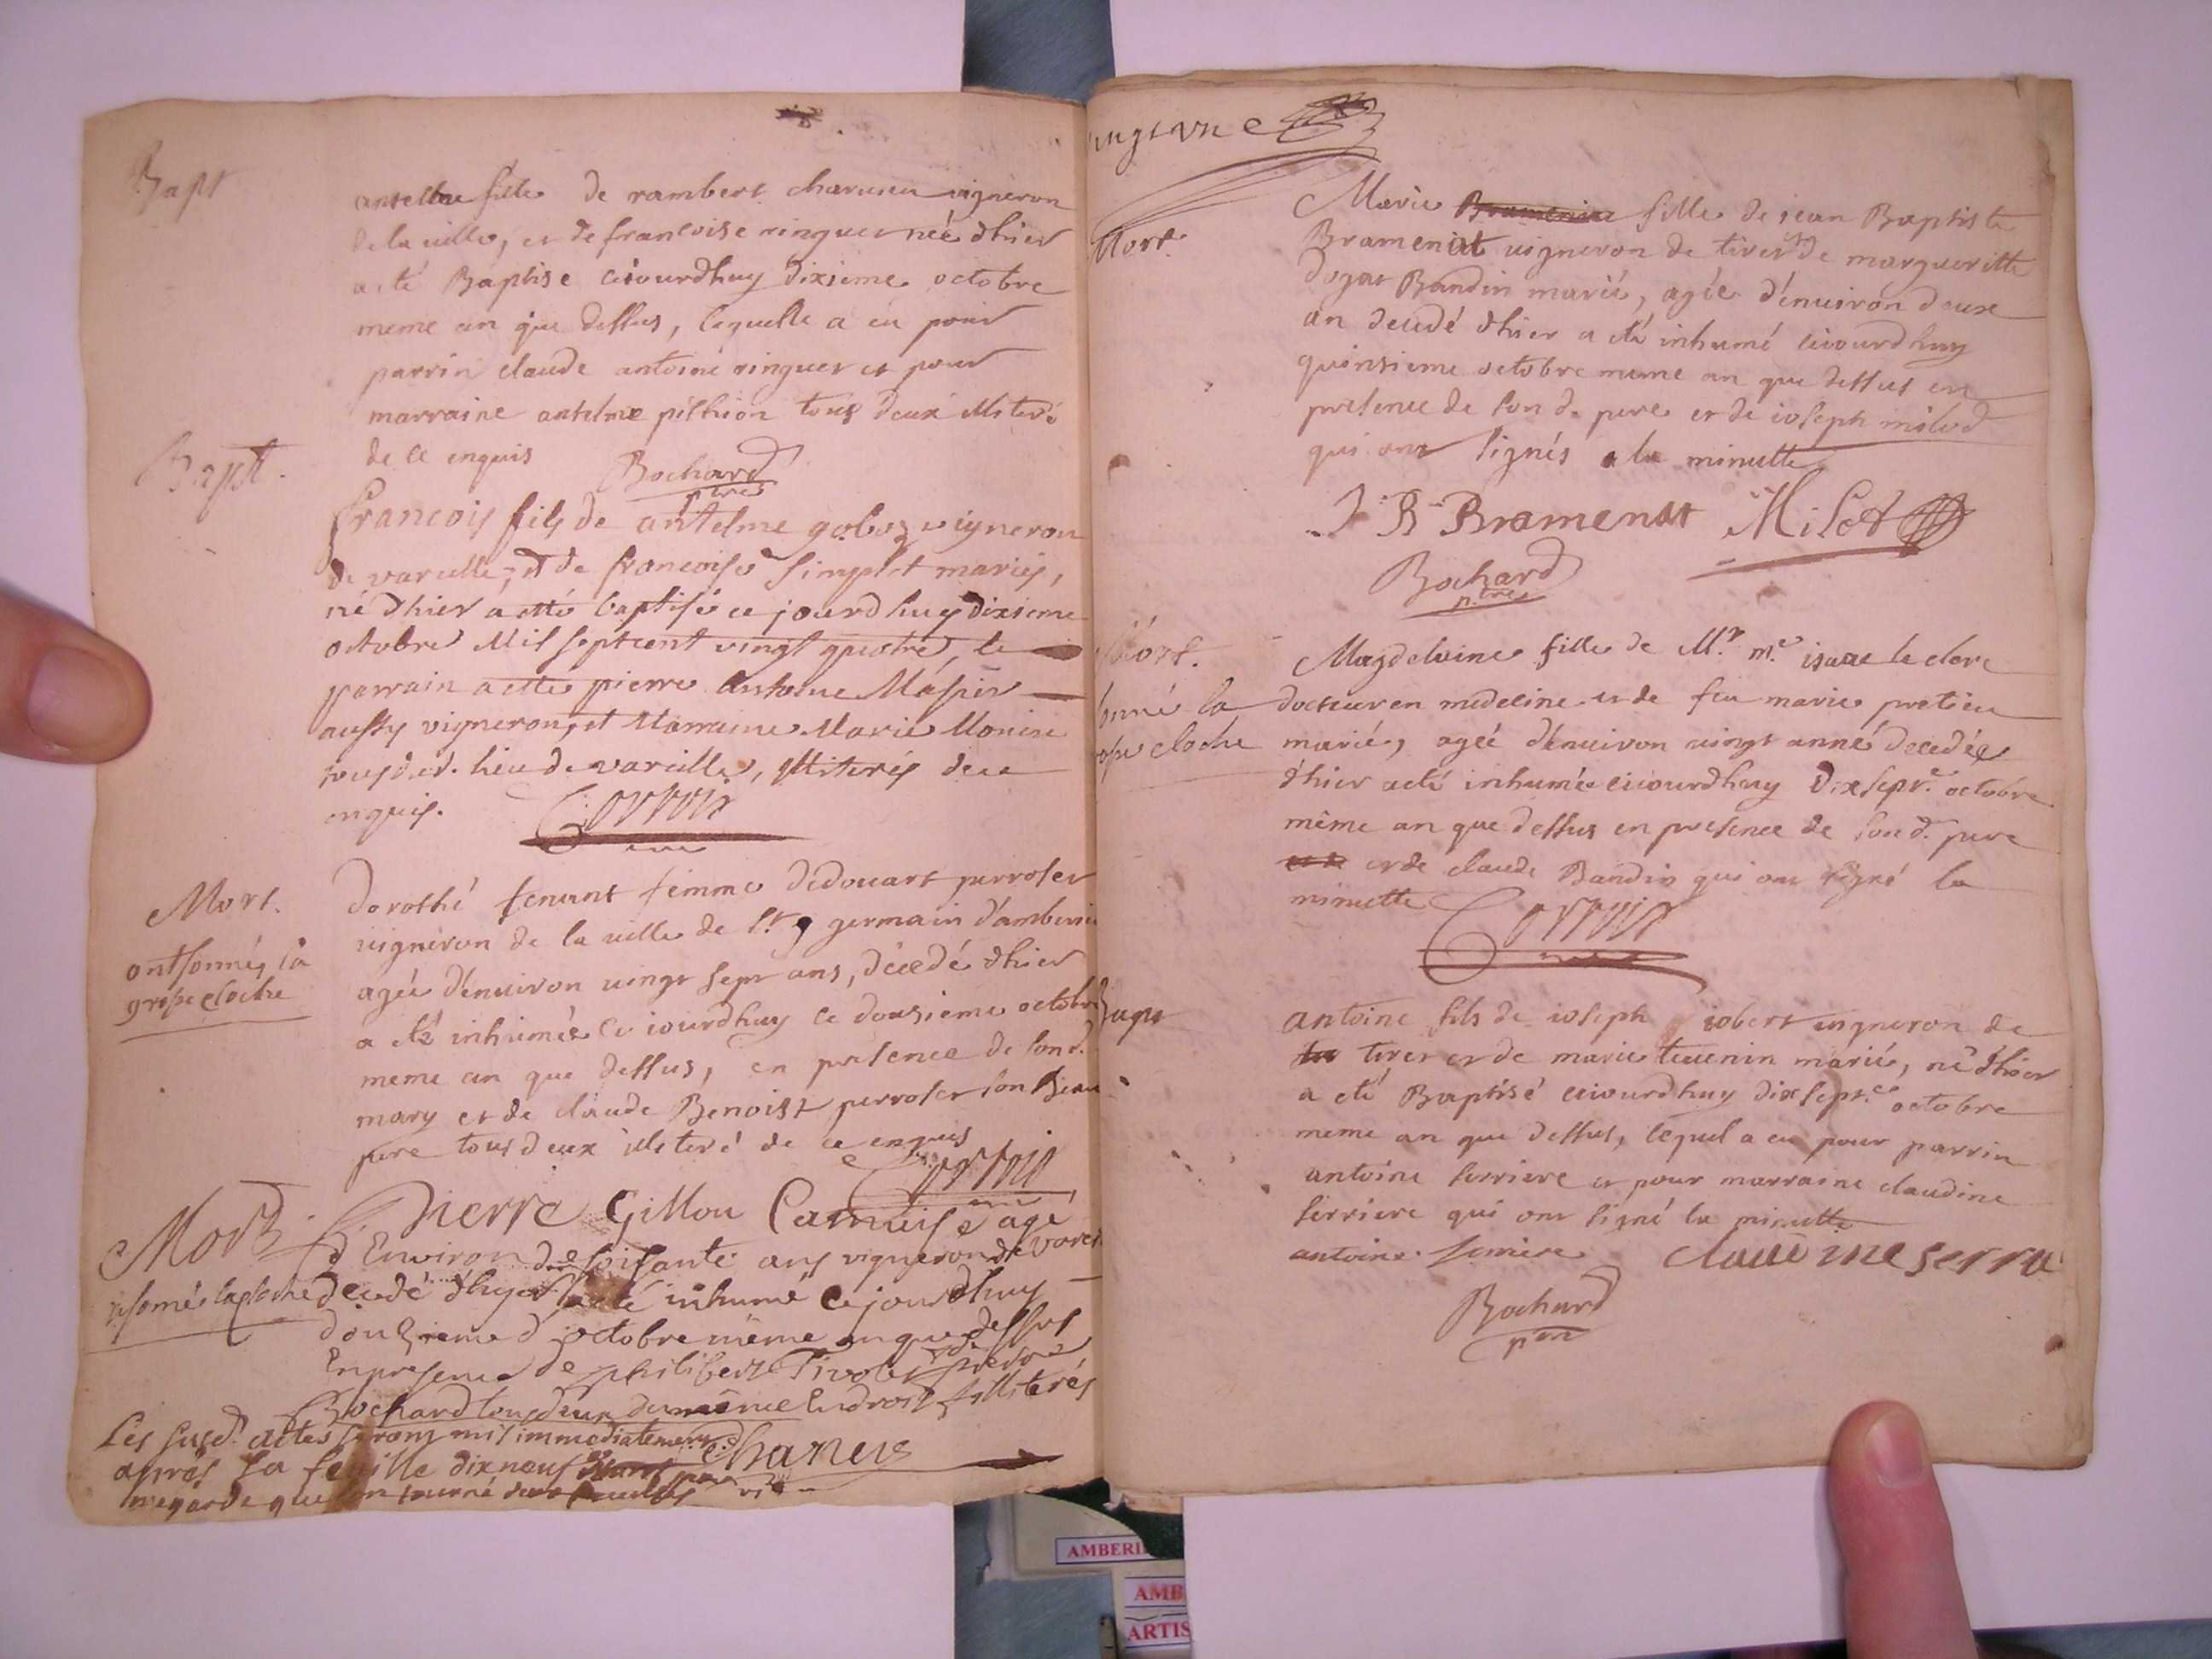 Bapt
antelme fille de rambert charueu vigneron
de la ville, et de francoise ringuet née dhier
a eté Baptise ciourdhuy dixieme octobre
meme an que dessus, lequelle a eu pour
parrin claude antoine ringuet et pour
marraine antelme pithion tous deux illiteré
de ce enquis Bochard
ptre
Bapt.
francois fils de antelme goboz vigneron
de vareille, et de francoise simplet mariés,
né dhier a etté baptisé ce jourdhuy dixieme
octobre Mil sept cent vingt quatre, le
parrain a etté pierre Antoine
aussy vigneron, et Marraine Marie
tous dud. lieu de vareille, illiterés de ce
enquis.
Mort.
ont sonnés la
grosse cloche
Dorothé tenant femme dedouart perroset
vigneron de la ville de st germain d'amberieu
agée d'enuiron vingt sept ans, décédé dhier
a eté inhumée ce iourdhuy ce dousieme octobre
meme an que dessus, en presence de sond.
mary et de claude Benoist perroset son Beau
pere tous deux illiteré de ce enquis
Mort
Pierre Gillou Camuise agé
d'Environ de soisante ans vigneron de
decedé dhyer a eté inhumé cejourdhuy
douzieme d'octobre même an que dessus
En presence de philibert Tivolet et de pierre
Bochard tous deux du même Endroit illiterés
Les susd. actes seront mis immediatement
après la feuille dixneuf
megarde que
vingt vne
Mort.
Marie Brameniae fille de iean Baptiste
Brameniat vigneron de tiret et de margueritte
dogat Bandin marié, agée d'enuiron deux
an decedé dhier a eté inhumé ciiourdhuy
quinsieme octobre meme an que dessus en
presence de son d. pere et de ioseph milod
qui ont signés a la minutte
J B Bramenat Milot
Bochard
ptre
Mort.
sonné la
grosse cloche
Magdelaine fille de Mr. me. isaac le clerc
docteur en medecine et de feu marie pretieu
marié, agée d'enuiron vingt année decedée
dhier a eté inhumée ciiourdhuy Dixsept.e octobre
même an que dessus en presence de son d. pere
et de et de claude Bandin qui ont signé la
minutte
Bapt
antoine fils de ioseph iobert vigneron de
tiret et de marie teuenin marié, né dhier
a eté Baptisé ciiourdhuy dixsept.e octobre
meme an que dessus, lequel a eu pour parrin
antoine serriere et pour marraine claudine
serriere qui ont signé la minutte
antoine serriere claudine serra
Bochard
ptre
AMBERI
AMB
ARTIS